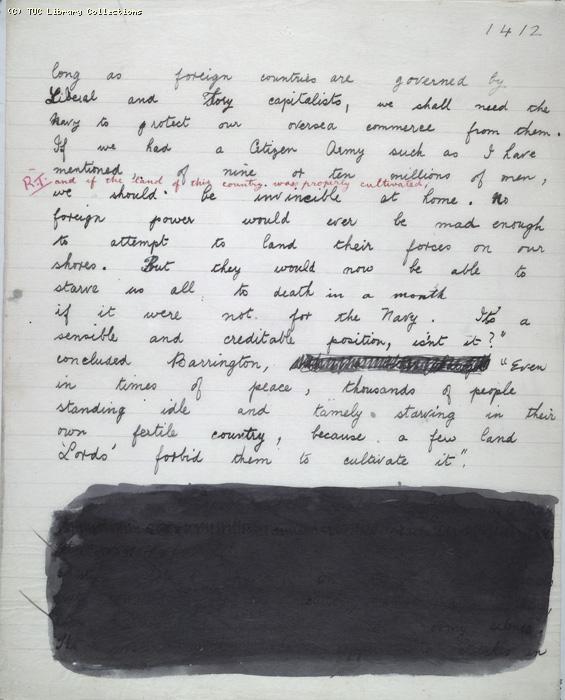 (C) TUC Library Collections
1412
long as foreign countries are governed by
Liberal and Tory capitalists, we shall need the
Navy to protect our oversea commerce from them.
If we had a Citizen Army such as I have
mentioned, of nine or ten millions of men,
R.T. and if the land of this country was properly cultivated,
we should be invincible at home. No
foreign power would ever be mad enough
to attempt to land their forces on our
shores. But they would now be able to
starve us all to death in a month
if it were not for the Navy. It's a
sensible and creditable position, isn't it?"
concluded Barrington, "Even
in times of peace, thousands of people
standing idle and tamely starving in their
own fertile country, because a few land
'Lords' forbid them to cultivate it".